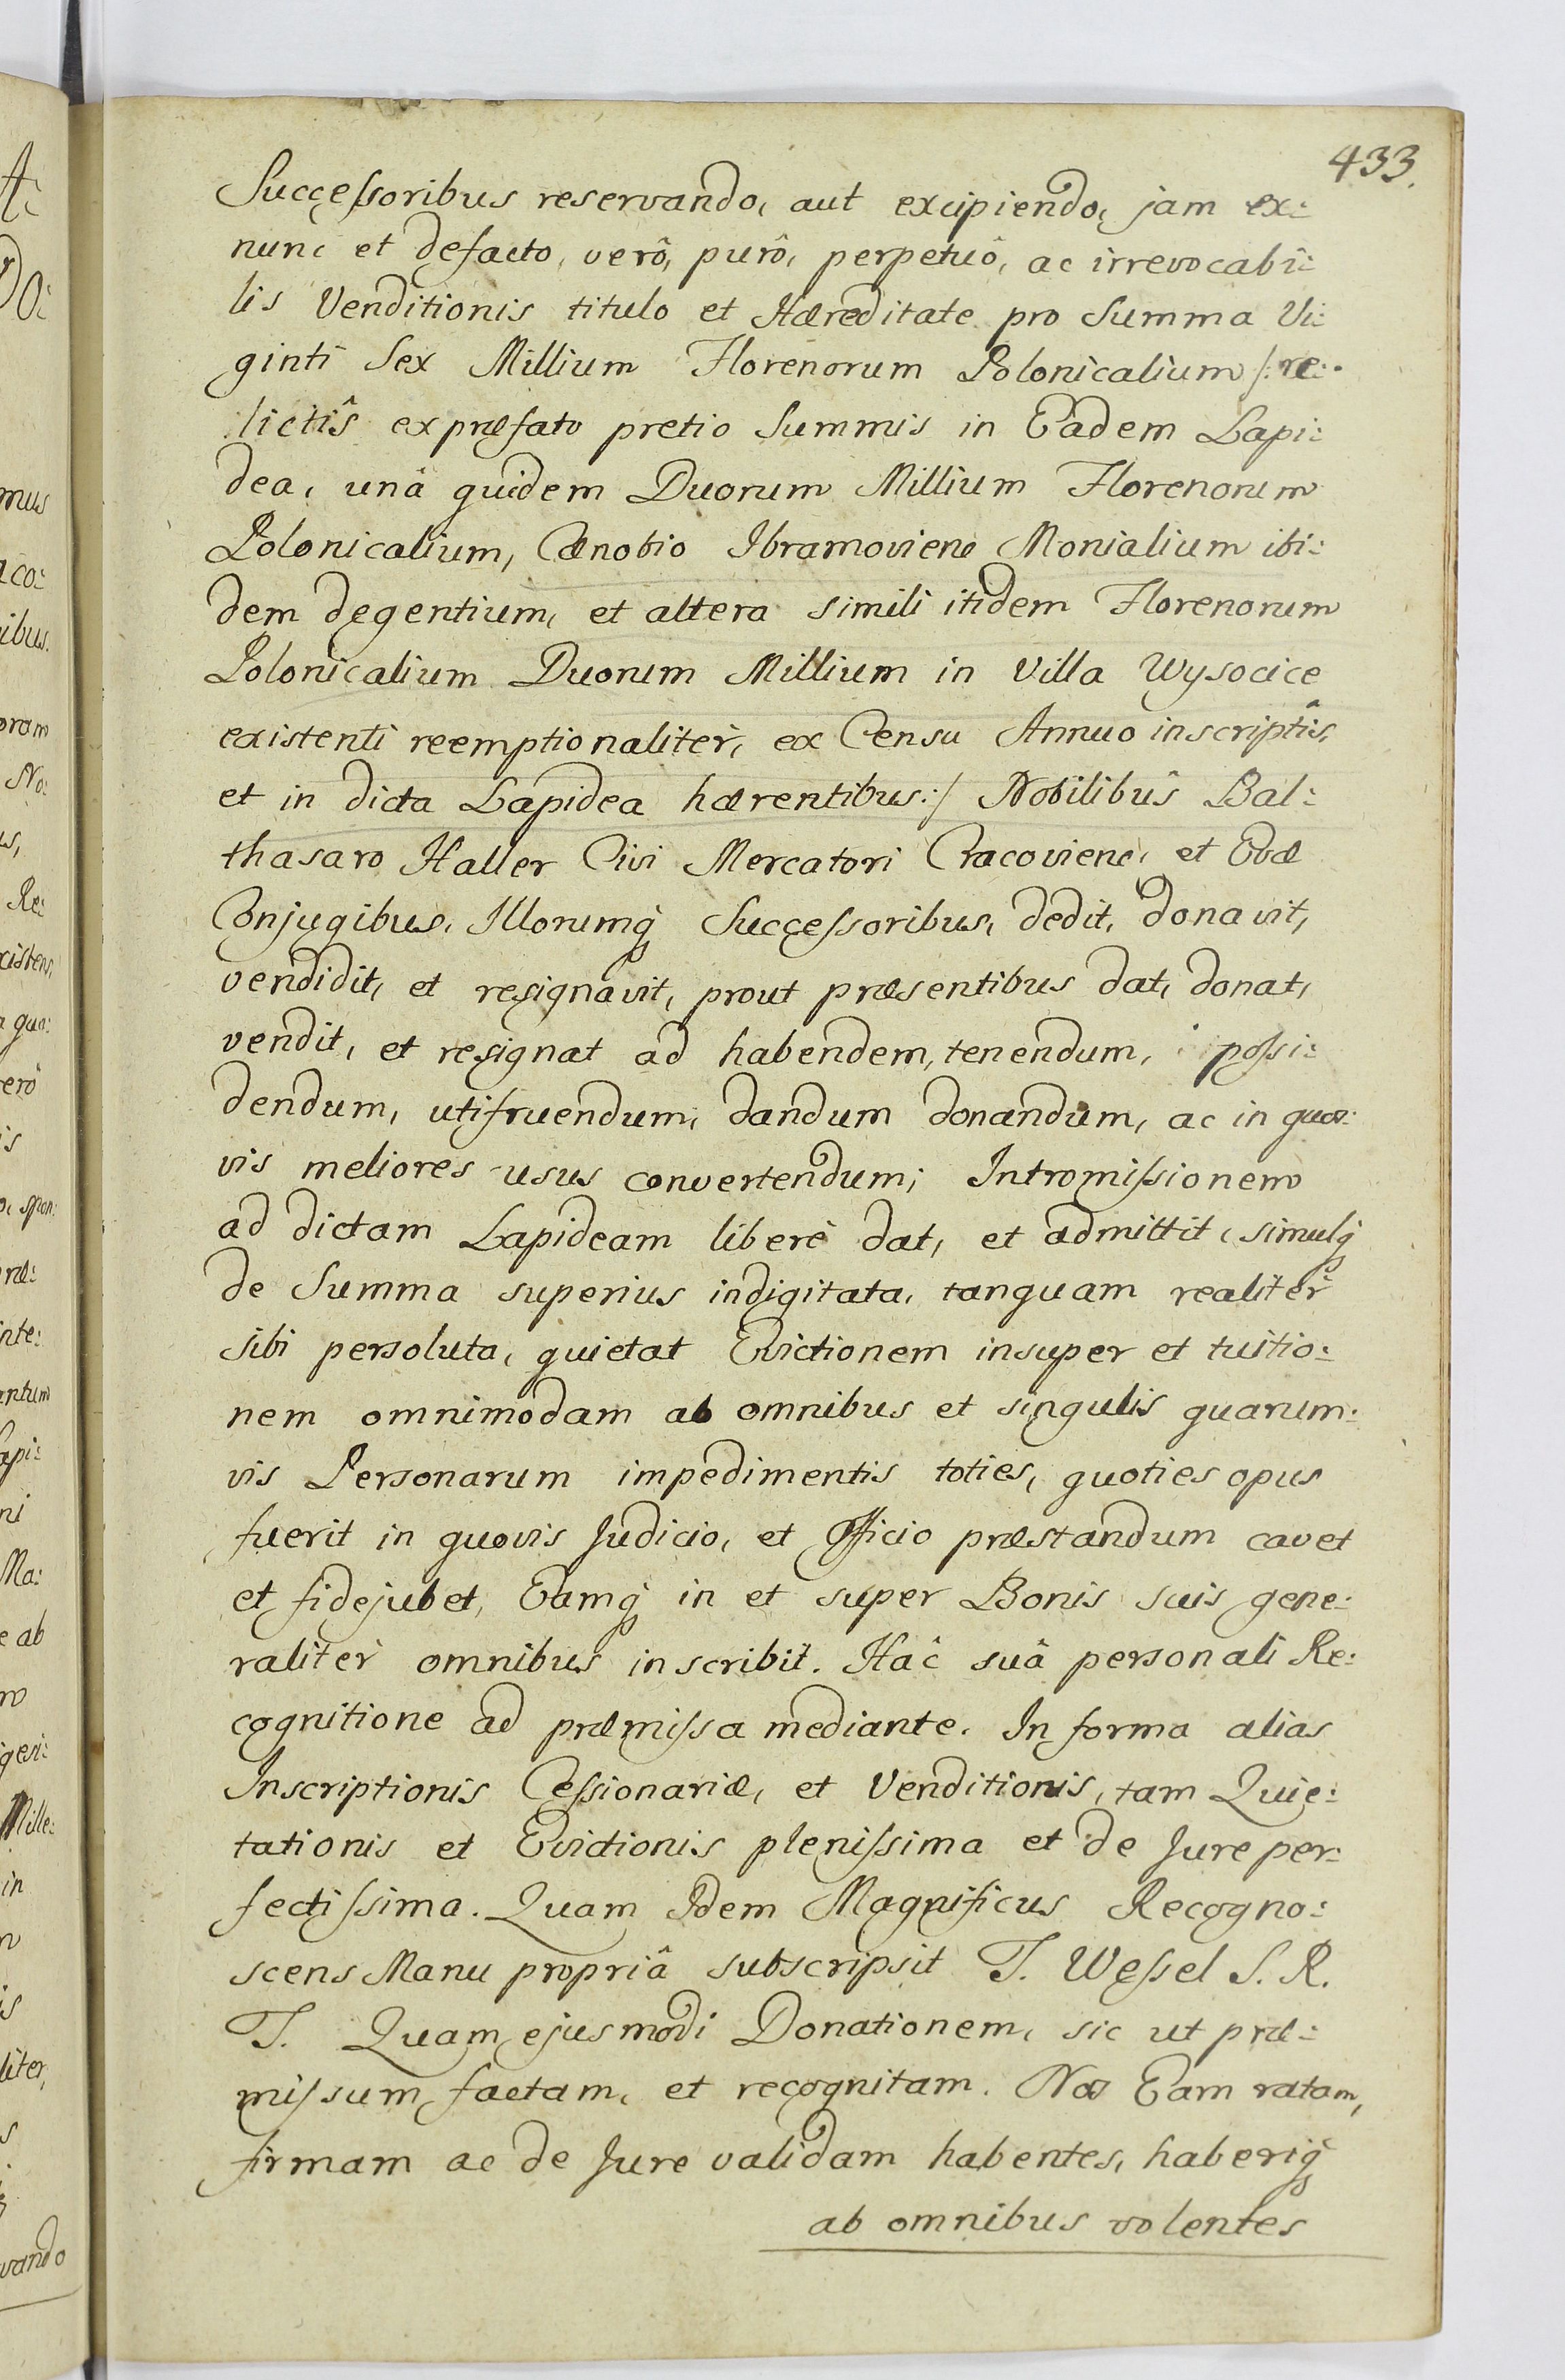 433.
Successoribus reservando, aut excipiendo, jam ex:
nunc et defacto, verô, purô, perpetuô, ac irrevocabi:
lis Venditionis titulo et Hæreditate pro Summa Vi:
ginti Sex Millium Florenorum Polonicalium /: re:
lictîs ex præfato pretio Summis in Eadem Lapi:
dea, unâ quidem Duorum Millium Florenorum
Polonicalium, Cænobio Ibramoviens Monialium ibi:
dem degentium, et altera simili itidem Florenorum
Polonicalium Duorum Millium in Villa Wysocice
existenti reemptionaliter, ex Censu Annuo inscriptîs,
et in dicta Lapidea hærentibus :/ Nobilibûs Bal:
thasaro Haller Civi Mercatori Cracoviens, et Evæ
Conjugibus, Illorumq Successoribus, dedit, donavit,
vendidit, et resignavit, prout præsentibus dat, donat,
vendit, et resignat ad habendem, tenendum, possi:
dendum, utifruendum, dandum donandum, ac in quos:
vis meliores usus convertendum; Intromissionem
ad dictam Lapideam liberè dat, et admittit, simulq
de Summa superius indigitata, tanquam realitèr
sibi persoluta, quietat Evictionem insuper et tuitio:
nem omnimodam ab omnibus et singulis quarum:
vis Personarum impedimentis toties, quoties opus
fuerit in quovis Judicio, et Officio præstandum cavet
et fidejubet, Eamq in et super Bonis suis gene:
raliter omnibus inscribit. Hâc suâ personali Re:
cognitione ad præmissa mediante. In forma alias
Inscriptionis Cessionariæ, et Venditionis, tam Quie:
tationis et Evictionis plenissima et de Jure per:
fectissima. Quam Idem Magnificus Recogno:
scens Manu propriâ subscripsit T. Wessel S. R.
T. Quam ejusmodi Donationem, sic ut præ:
missum factam, et recognitam. Nos Eam ratam,
firmam ac de Jure validam habentes, haberiq
ab omnibus volentes